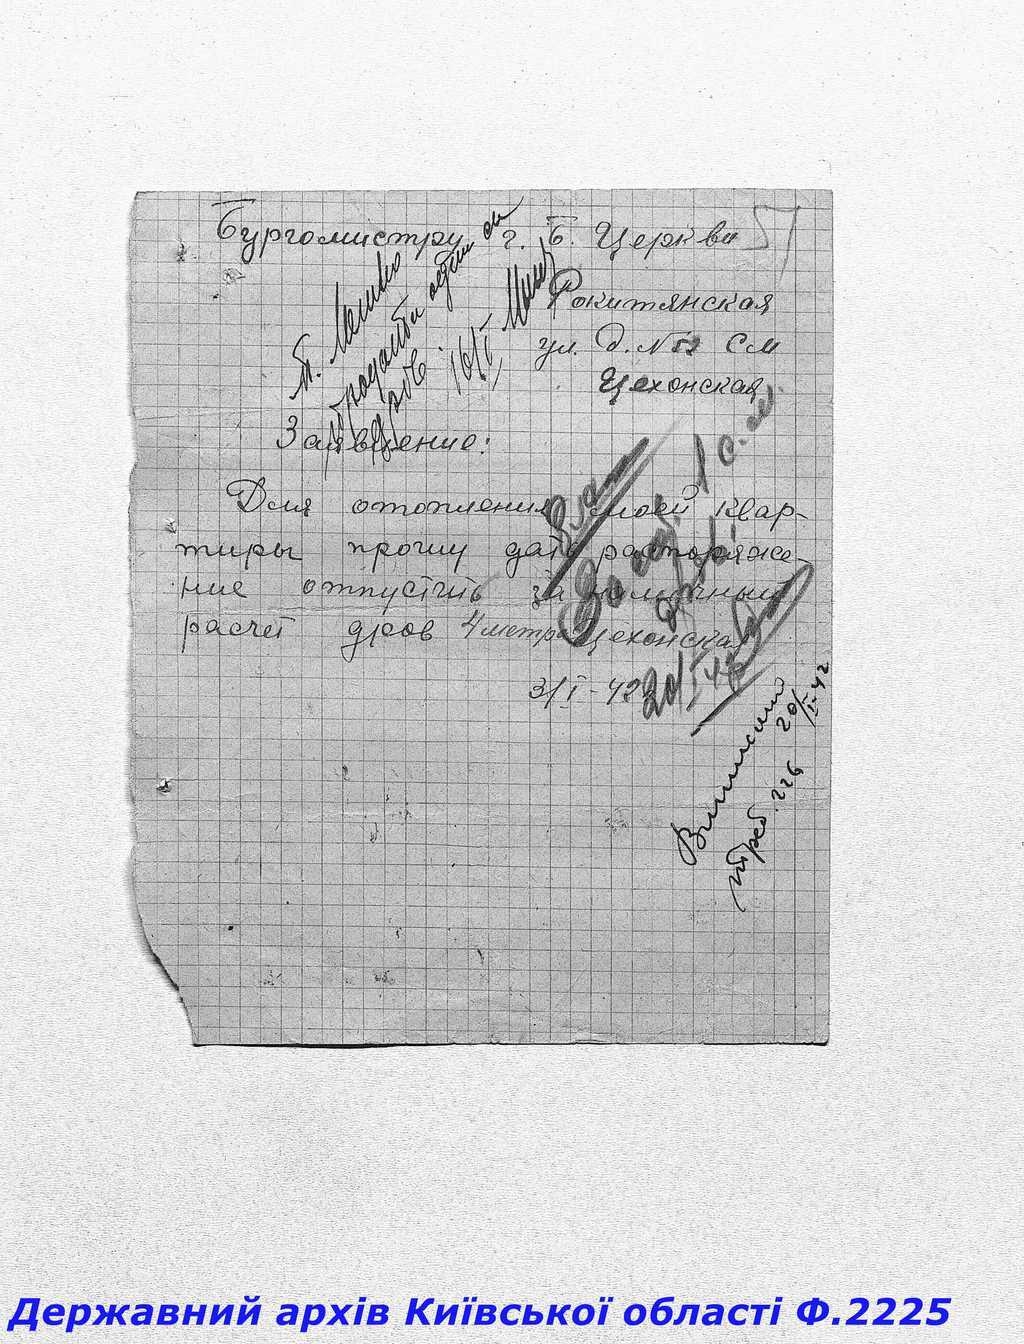 Бургомистру г. Б. Церкви
57
Рокитянская
ул. д. №52 См
Цехонская
Заявление:
Для отопления моей квар-
тиры прошу дать распоряже-
ние отпустить за наличный
расчет дров 4 метра Цехонская
3/I-42
дров. 16/I
1 с.м.
дров.
20/I 42
Выписано
треб. 226 20/I-42
Державний архів Київської області Ф.2225